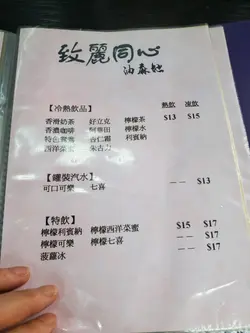 致麗同心
熱飲 凍飲
【冷熱飲品】
香滑奶茶 好立克 檸檬茶 $13 $15
香濃咖啡 阿華田 檸檬水
特色鴛鴦 杏仁霜 利賓納
西洋菜蜜 朱古力
【罐裝汽水】
可口可樂 七喜 －－ $13
【特飲】
檸檬利賓納 檸檬西洋菜蜜 $15 $17
檸檬可樂 檸檬七喜 －－ $17
菠蘿冰 －－ $17